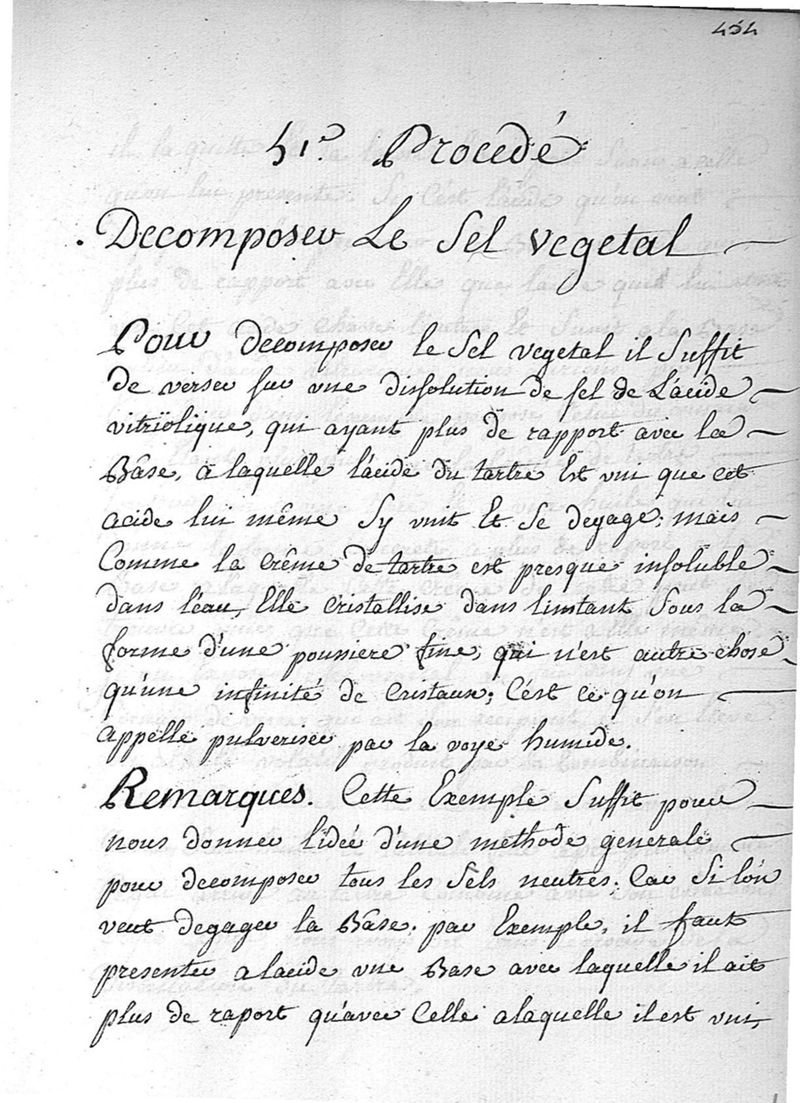 454
51.e Procédé
Decomposer Le Sel vegetal
Pour decomposer le Sel vegetal il Suffit
de verser sur une dissolution de sel de L'acide
vitriolique, qui ayant plus de rapport avec la
Bâse, a laquelle l'acide du tartre Est uni que cet
acide lui même Sy unit Et Se degage; mais
Comme la crême de tartre est presque insoluble
dans l'eau, Elle cristallise dans l'instant Sous la
forme d'une poussiere fine, qui n'est autre chose
qu'une infinité de cristaux; C'est ce qu'on
appelle pulverisée par la voye humide.
Remarques. Cette Exemple Suffit pour
nous donner l'idée d'une méthode generale
pour decomposer tous les Sels neutres. Car Si lón
veut degager la Bâse. par Exemple, il faut
presenter a lacide une Base avec laquelle il ait
plus de raport qu'avec Celle alaquelle il est uni,